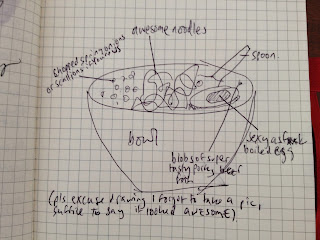 awesome noodles
chopped spring onions
or scallions
spoon
bowl
sexy as
boiled egg
blobs of super
tasty
(pls excuse drawing I forgot to take a pic,
suffice to say it looked awesome).